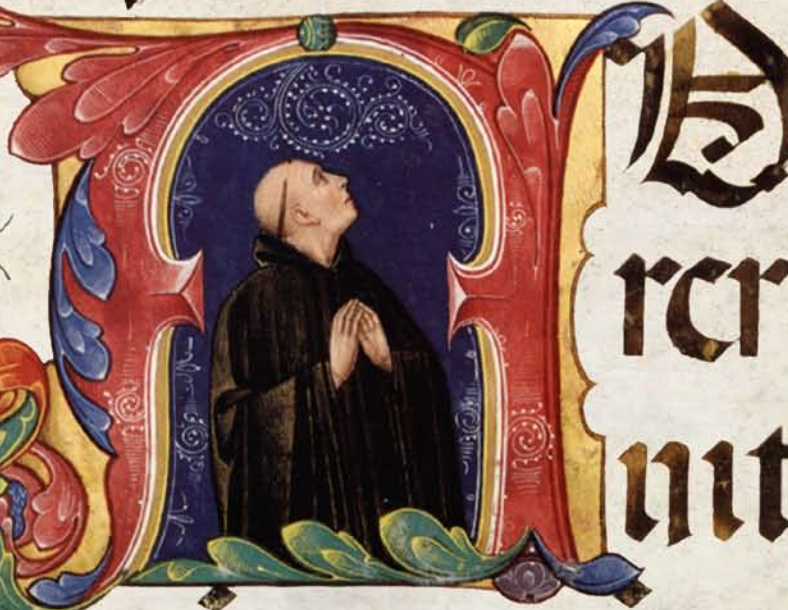 AD
rcr
nit